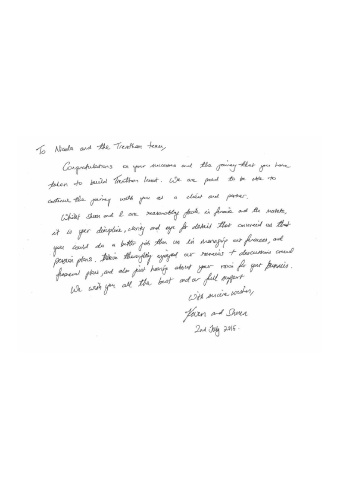 To Nicola and the Trentham team,
Congratulations on your success and the journey that you have
taken to build Trentham Invest. We are proud to be able to
continue the journey with you as a client and partner.
Whilst Shaun and I are reasonably adept in finance and the markets,
it is your discipline, clarity and eye for detail that convinced us that
you could do a better job than us in managing our finances, and
pension plans. thoroughly enjoyed our reviews + discussions around
financial plans, and also just hearing about your vision for your business.
We wish you all the best and our full support
With sincere wishes,
and Shaun
2nd July 2016.